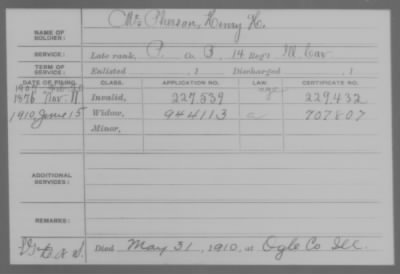 NAME OF SOLDIER: McPherson, Henry H.
SERVICE: Late rank, P. Co. B, 14 Reg't Ill Cav.
TERM OF SERVICE: Enlisted , 1 Discharged , 1
DATE OF FILING. CLASS. APPLICATION NO. LAW. CERTIFICATE NO.
1907
1876 Nov. 11 Invalid, 227,539 age 229,432
1910 June 15 Widow, 944113 a 707807
Minor,
ADDITIONAL SERVICES:
REMARKS:
Died May 31, 1910, at Ogle Co Ill.